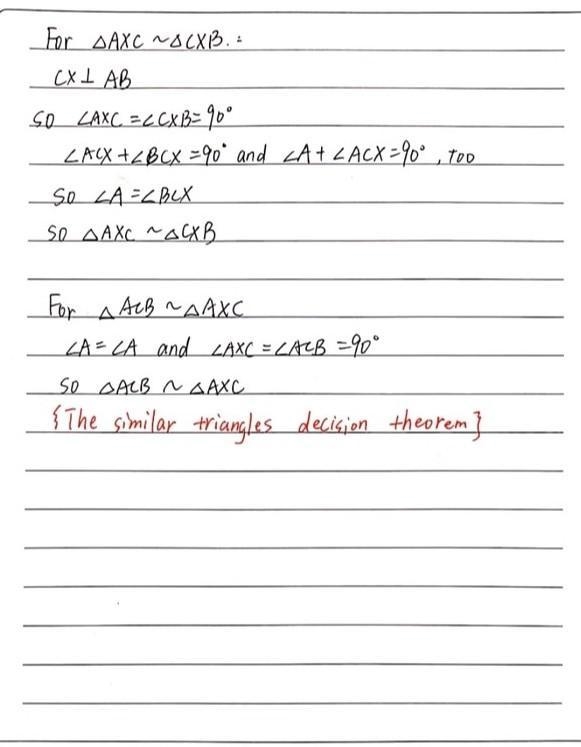 For △AXC ~ △CXB. :
CX ⊥ AB
SO ∠AXC = ∠CXB = 90°
∠ACX + ∠BCX = 90° and ∠A + ∠ACX = 90°, TOO
SO ∠A = ∠BCX
SO △AXC ~ △CXB
For △ACB ~ △AXC
∠A = ∠A and ∠AXC = ∠ACB = 90°
SO △ACB ~ △AXC
{The similar triangles decision theorem}